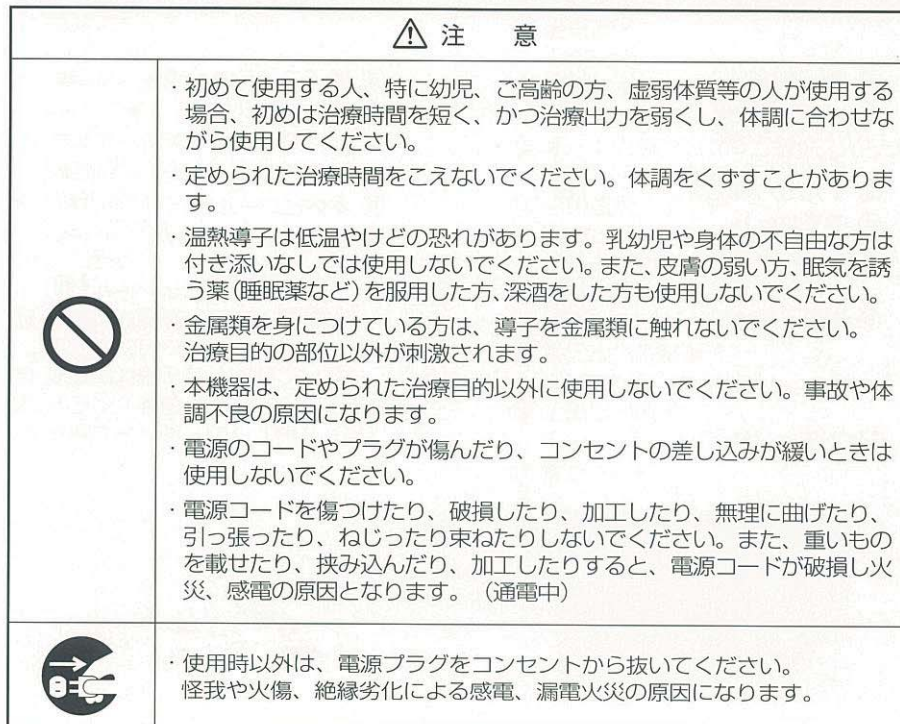 ⚠ 注 意
・初めて使用する人、特に幼児、ご高齢の方、虚弱体質等の人が使用する
場合、初めは治療時間を短く、かつ治療出力を弱くし、体調に合わせな
がら使用してください。
・定められた治療時間をこえないでください。体調をくずすことがありま
す。
・温熱導子は低温やけどの恐れがあります。乳幼児や身体の不自由な方は
付き添いなしでは使用しないでください。また、皮膚の弱い方、眠気を誘
う薬(睡眠薬など)を服用した方、深酒をした方も使用しないでください。
・金属類を身につけている方は、導子を金属類に触れないでください。
治療目的の部位以外が刺激されます。
・本機器は、定められた治療目的以外に使用しないでください。事故や体
調不良の原因になります。
・電源のコードやプラグが傷んだり、コンセントの差し込みが緩いときは
使用しないでください。
・電源コードを傷つけたり、破損したり、加工したり、無理に曲げたり、
引っ張ったり、ねじったり束ねたりしないでください。また、重いもの
を載せたり、挟み込んだり、加工したりすると、電源コードが破損し火
災、感電の原因となります。（通電中）
・使用時以外は、電源プラグをコンセントから抜いてください。
怪我や火傷、絶縁劣化による感電、漏電火災の原因になります。